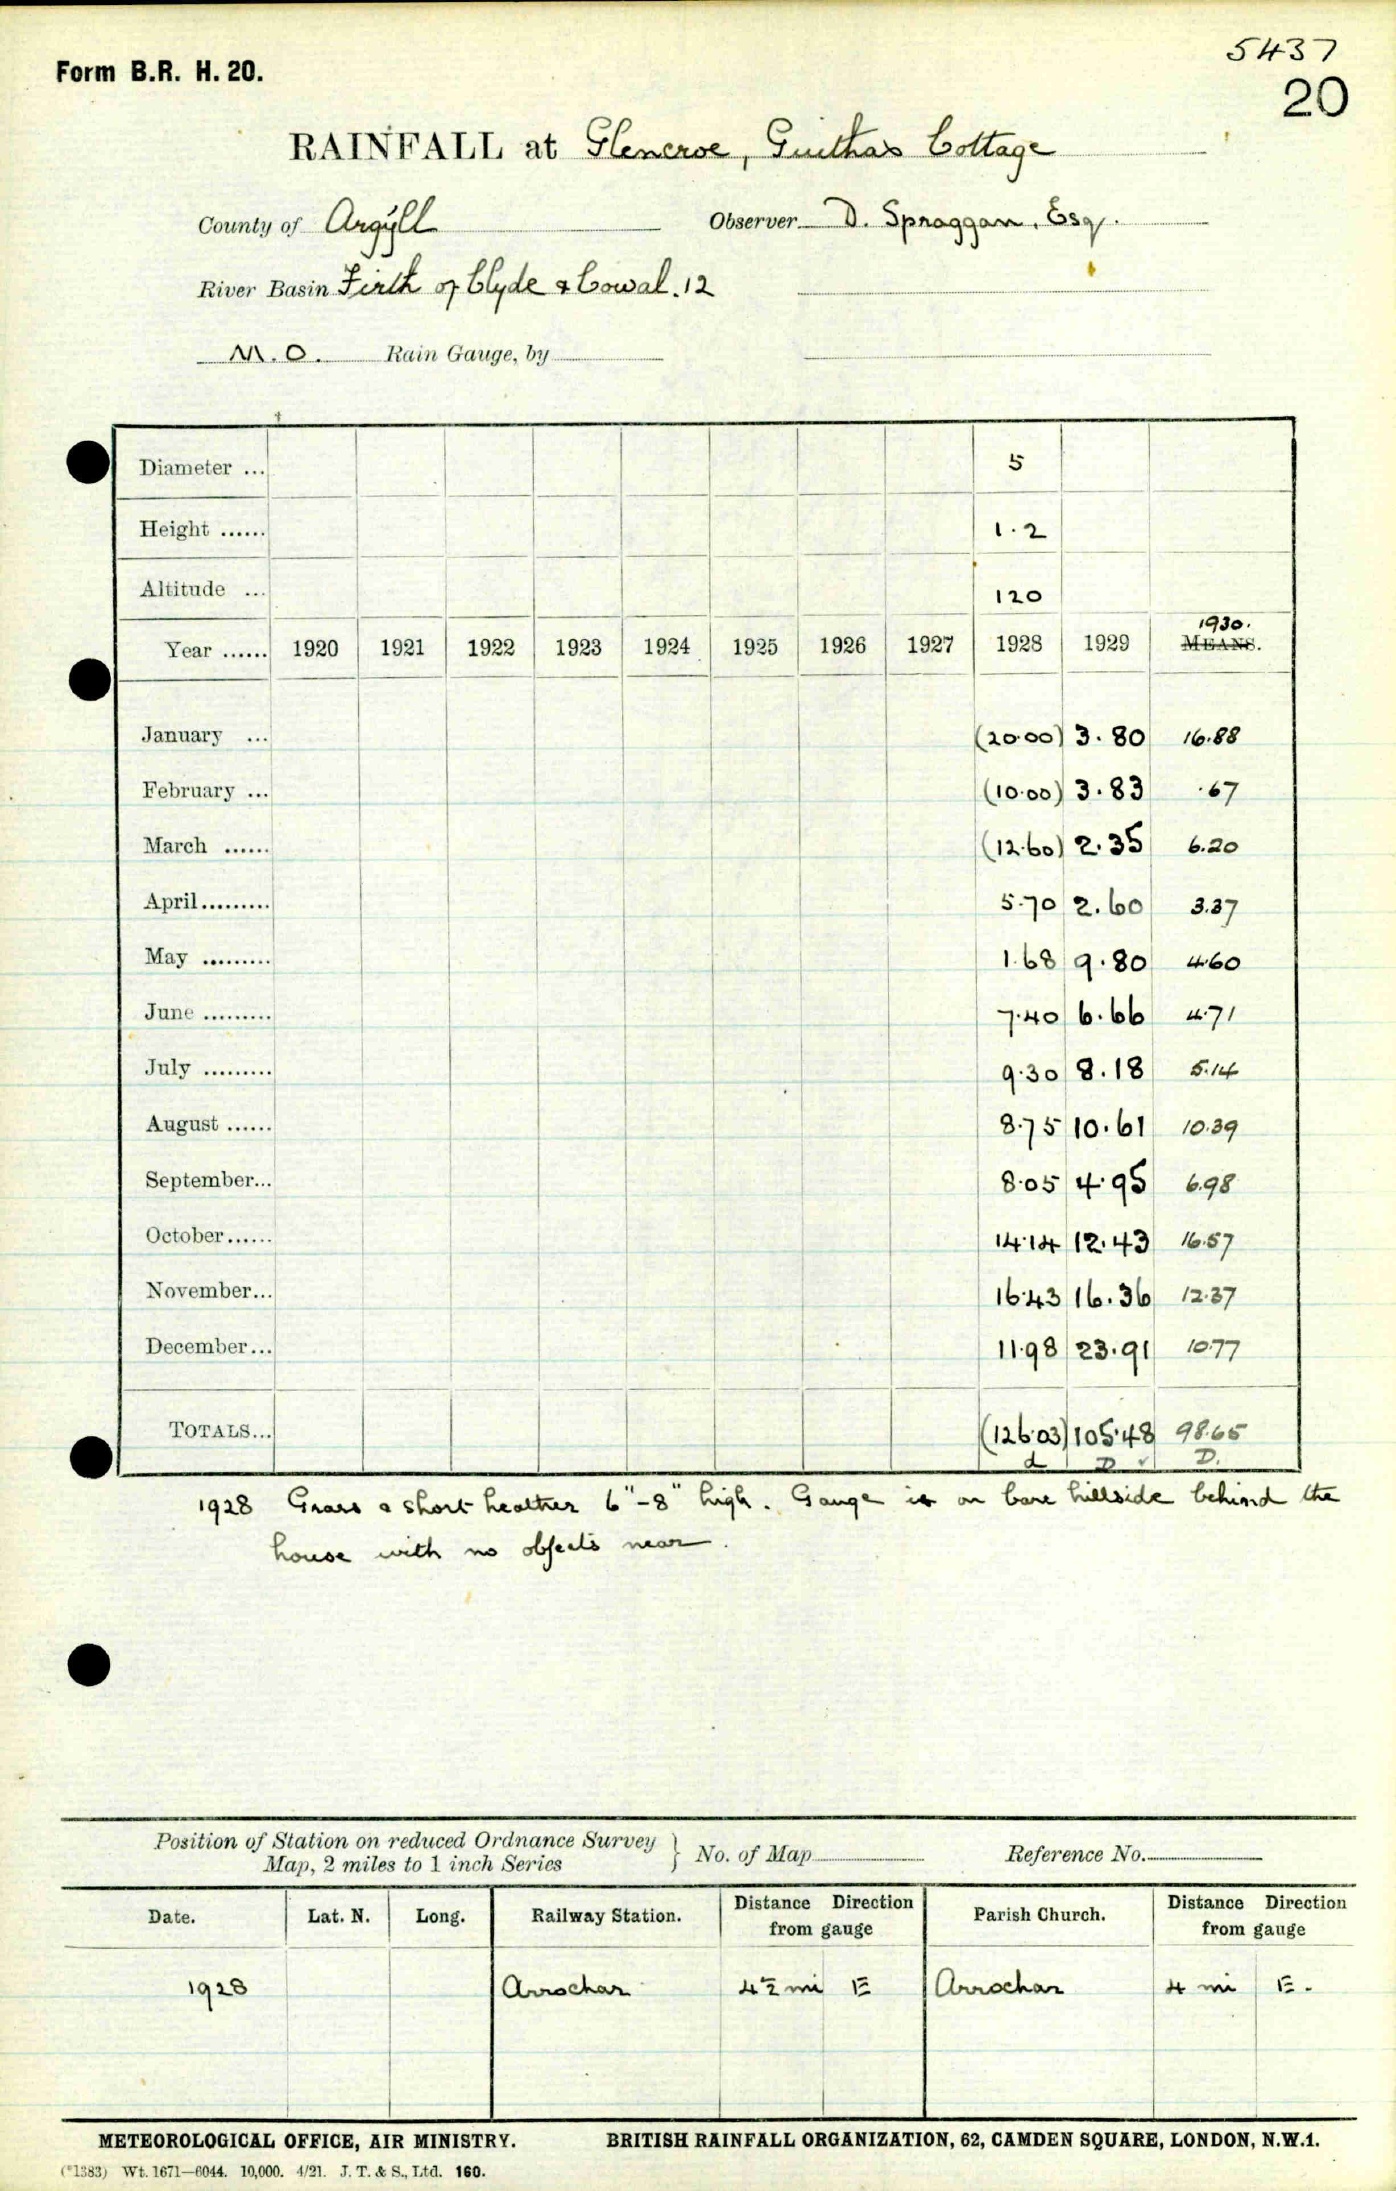 5437
Form B.R. H. 20.
20
RAINFALL at Glencroe, Guithas Cottage
County of Argyll Observer D. Spraggan, Esq.
River Basin Firth of Clyde & Cowal. 12
M.O. Rain Gauge, by
Diameter ... 5
Height ...... 1.2
Altitude ... 120
1930.
Year ...... 1920 1921 1922 1923 1924 1925 1926 1927 1928 1929 MEANS.
January ... (20.00) 3.80 16.88
February ... (10.00) 3.83 .67
March ...... (12.60) 2.35 6.20
April ......... 5.70 2.60 3.37
May ......... 1.68 9.80 4.60
June ......... 7.40 6.66 4.71
July ......... 9.30 8.18 5.14
August ...... 8.75 10.61 10.39
September... 8.05 4.95 6.98
October...... 14.14 12.43 16.57
November... 16.43 16.36 12.37
December... 11.98 23.91 10.77
TOTALS... (126.03) 105.48 98.65
d D ✓ D.
1928 Grass & short heather 6"-8" high. Gauge is on bare hillside behind the
house with no objects near.
Position of Station on reduced Ordnance Survey
Map, 2 miles to 1 inch Series } No. of Map Reference No.
Date. Lat. N. Long. Railway Station. Distance Direction from gauge Parish Church. Distance Direction from gauge
1928 Arrochar 4½ mi E Arrochar 4 mi E.
METEOROLOGICAL OFFICE, AIR MINISTRY. BRITISH RAINFALL ORGANIZATION, 62, CAMDEN SQUARE, LONDON, N.W.1.
(*1383) Wt. 1671—6044. 10,000. 4/21. J. T. & S., Ltd. 160.